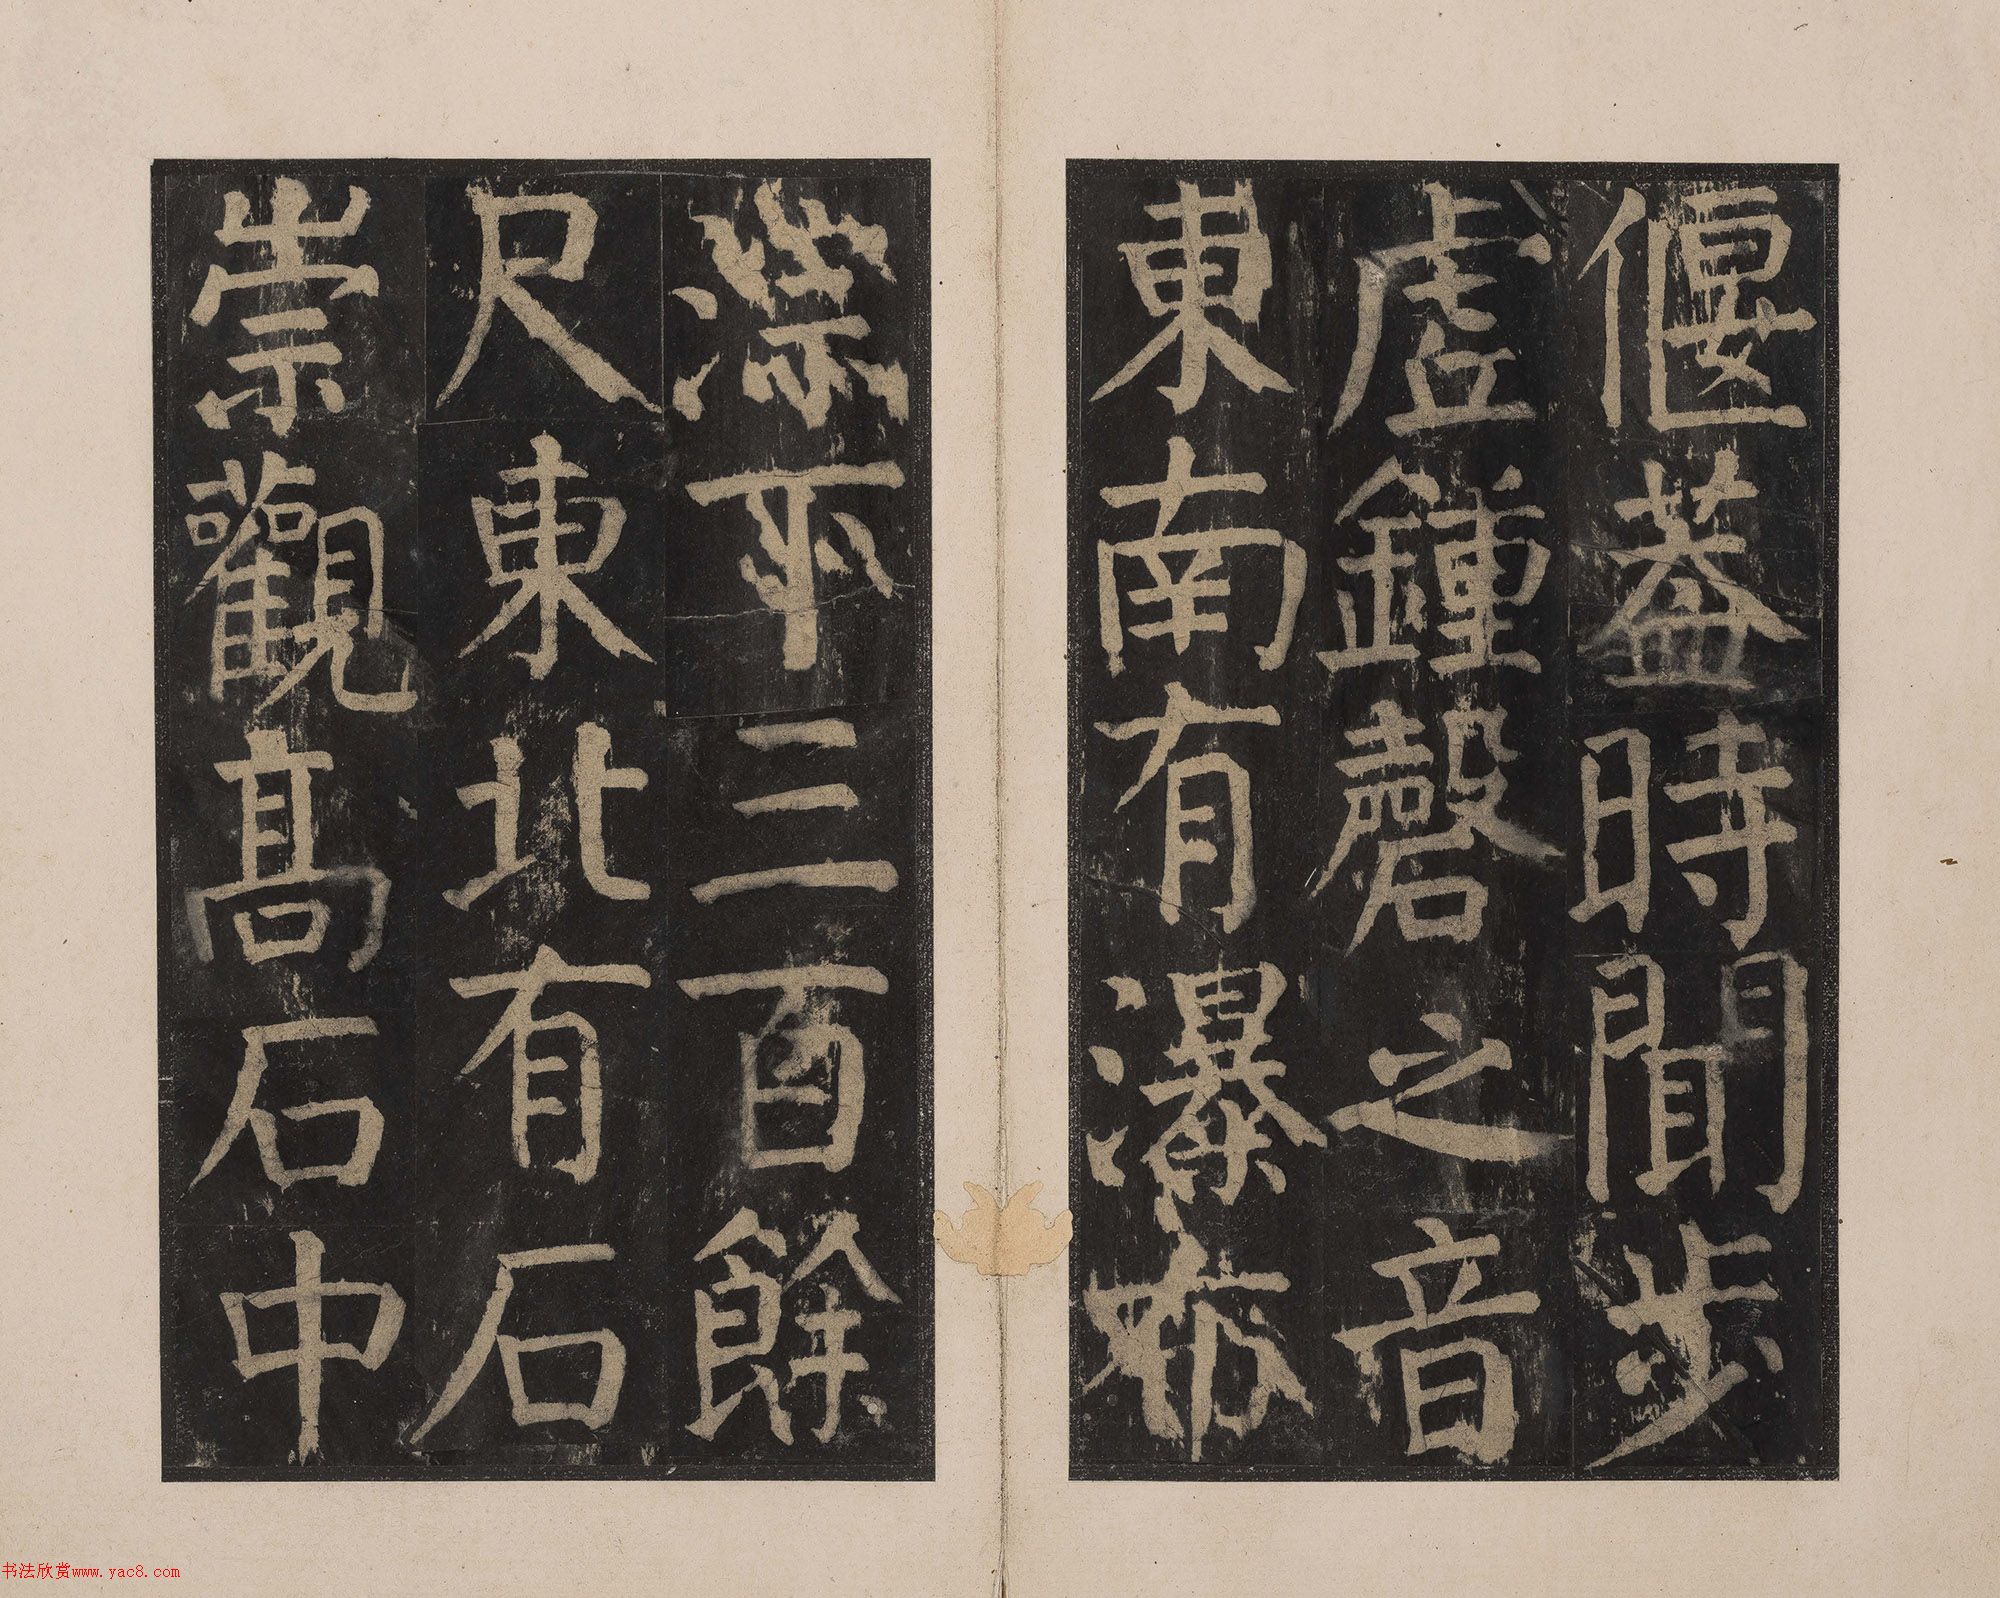 偃蓋時聞步
虛鍾磬之音
東南有瀑布
淙下三百餘
尺東北有石
崇觀高石中
书法欣赏www.yac8.com